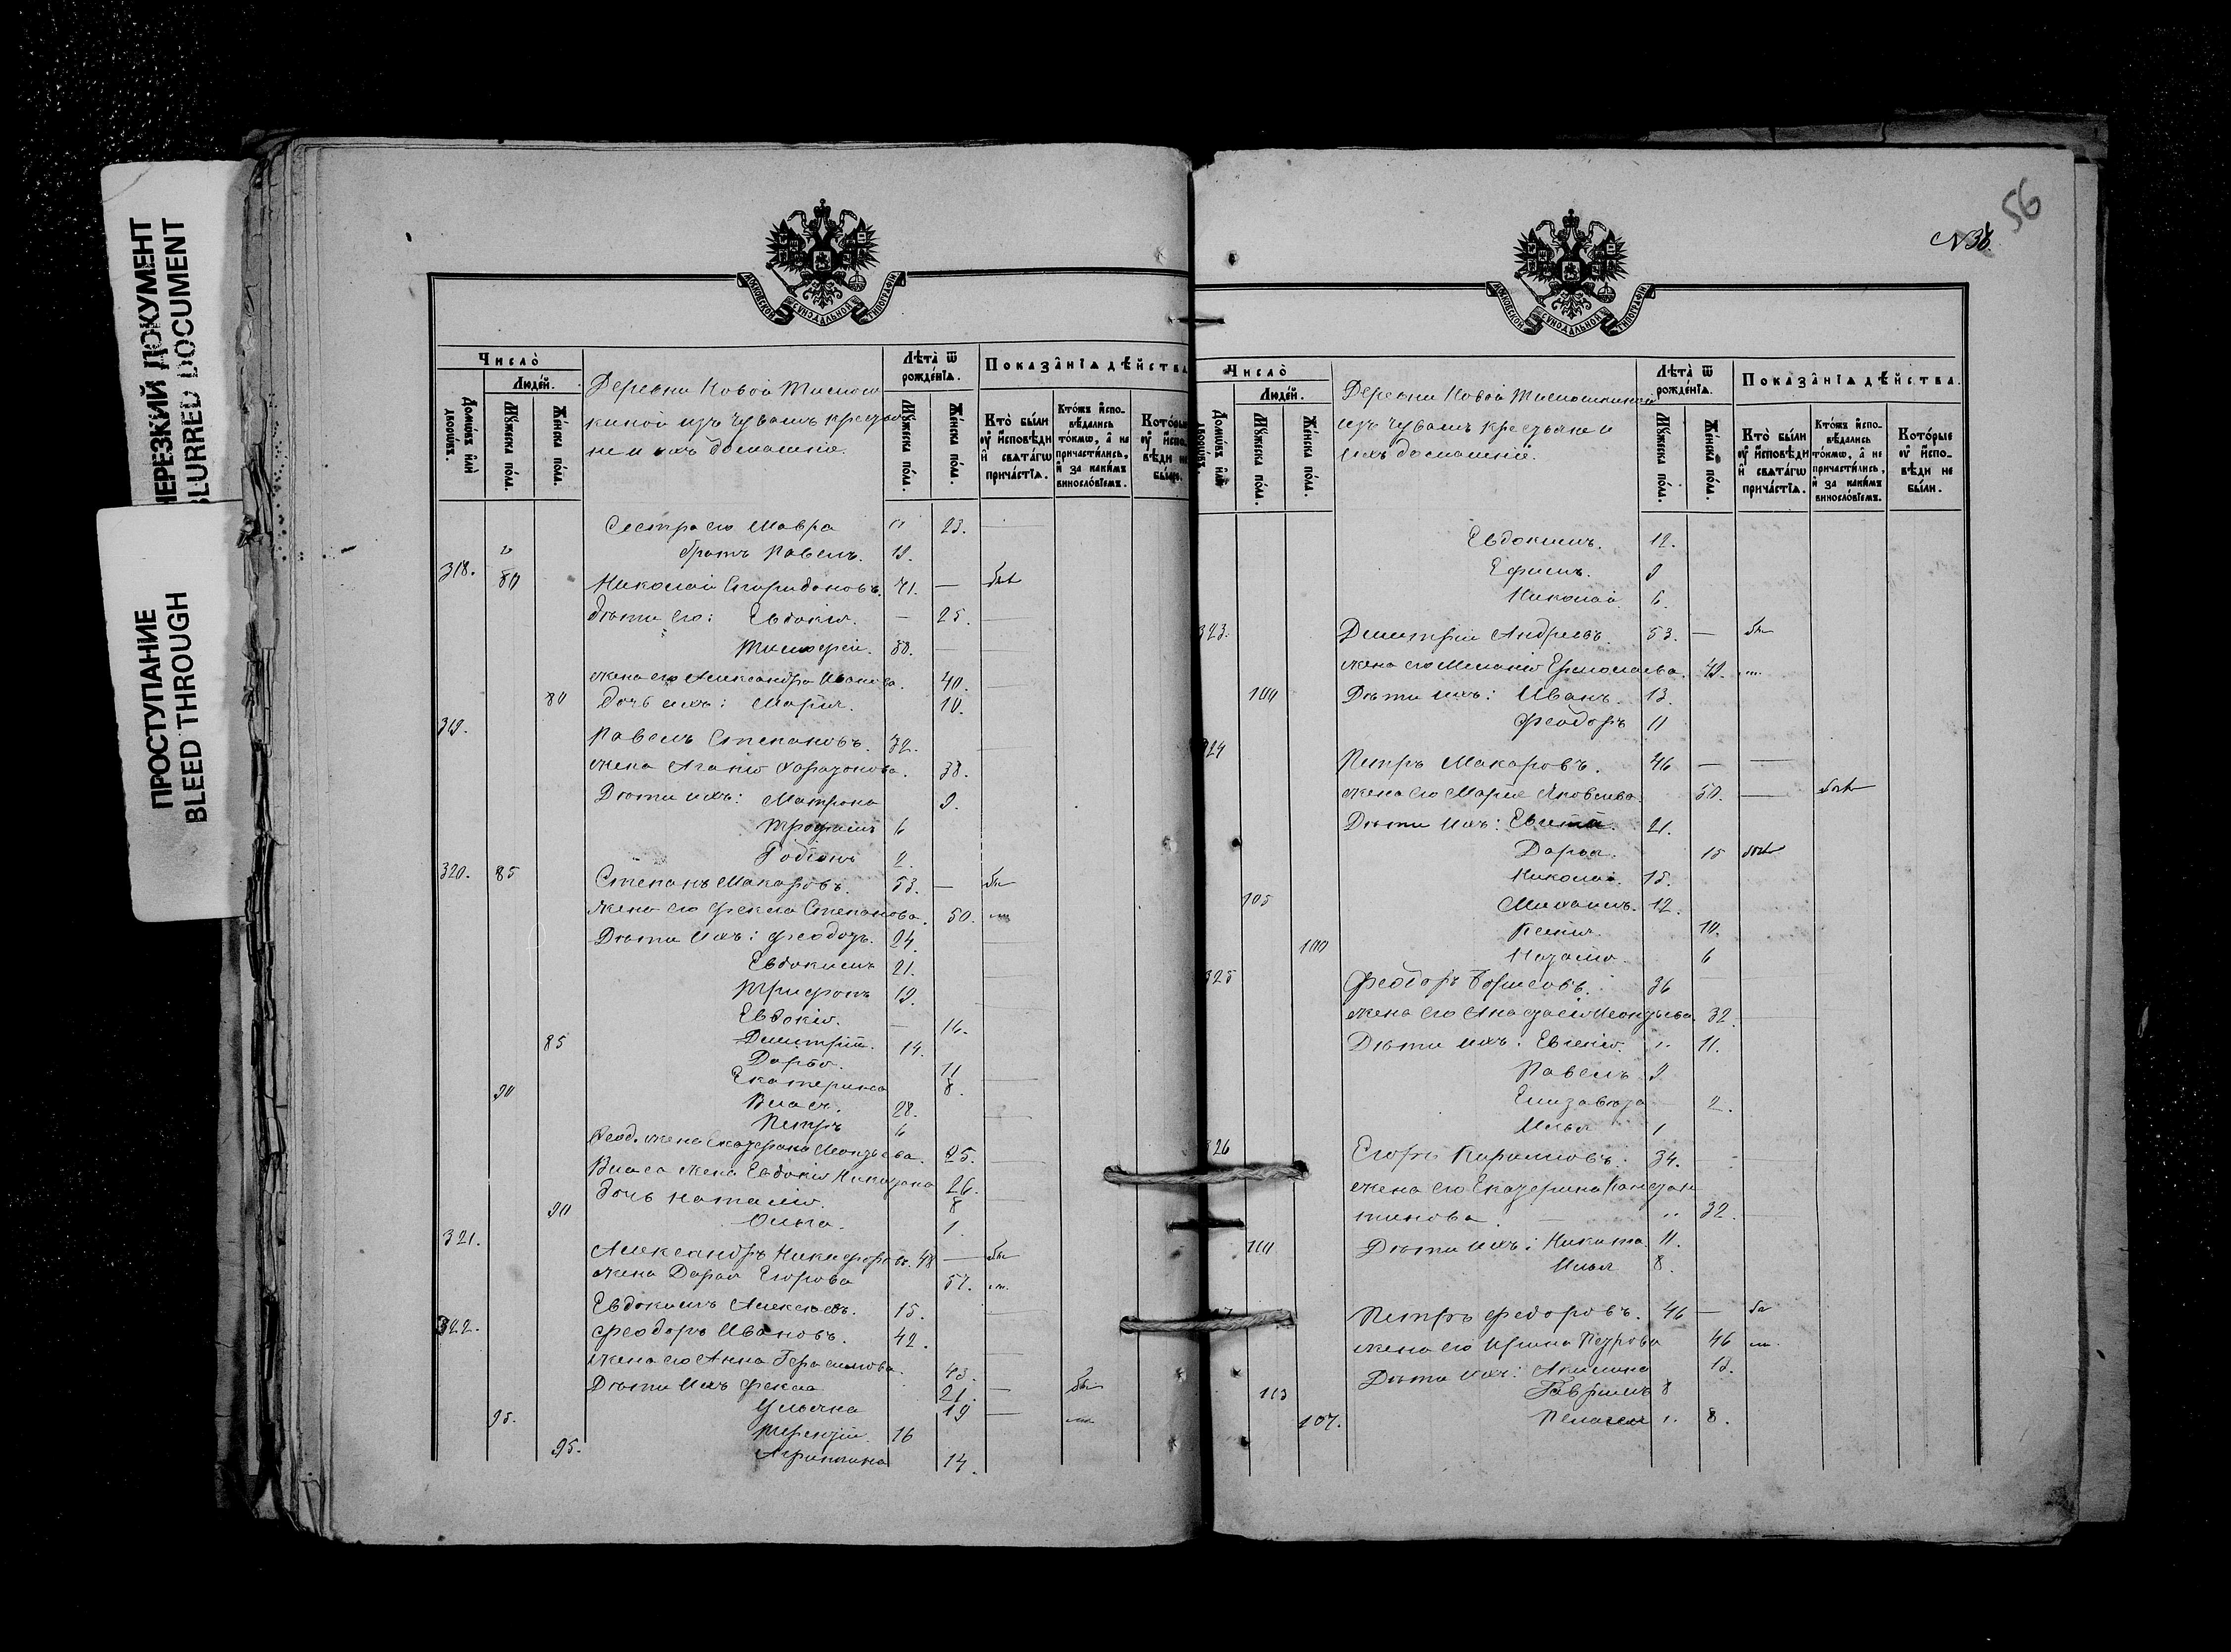 ПРОСТУПАНИЕ
BLEED THROUGH
НЕРЕЗКИЙ ДОКУМЕНТ
BLURRED DOCUMENT
Число̀
Людѐй.
Домѡ́въ и҆лѝ дворѡ́въ.
Мꙋ́жеска по́ла.
Же́нска по́ла.
Деревни Новой
киной изъ Чувашъ крестья
не и ихъ домашніе.
Лѣта̀ ѿ рожде́нїѧ.
Мꙋ́жеска по́ла.
Же́нска по́ла.
Показа̑нїѧ дѣ́йства
Кто̀ бы́ли ᲂу҆ и҆́сповѣди и҆ свѧта́гѡ прича́стїѧ.
Кто́жъ и҆сповѣ́дались то́кмѡ, а҆ не причасти́лись, и҆ за каки́мъ винносло́вїемъ.
Кото́рые ᲂу҆ и҆́сповѣди не бы́ли.
Сестра его Мавра " 23.
братъ Павелъ. 19.
318. 80 Николай Спиридоновъ. 71. —
дѣти его: Евдокія. — 25.
Тимофей. —
жена его Александра Иванова. 40.
80 дочь ихъ: Марія. 10.
319. Павелъ Степановъ. 32.
жена Агаѳія 38.
Дѣти ихъ: Матрона 9.
Трофимъ 6
Родіонъ 2.
320. 85 Степанъ Макаровъ. 53. — бы
жена его Фекла Степанова. 50.
Дѣти ихъ: Феодоръ. 24.
Евдокимъ 21.
Трифонъ 19.
Евдокія. — 16.
85 Димитрій. 14.
Дарья. 11
Екатерина 8.
90 Власъ. 28.
Петръ 6
Феод. жена Екатерина Леонтьева. 25.
Власа жена Евдокія 26.
дочь Наталія. 8
90 Ольга. 1.
321. Александръ Никифоровъ. 48 — бы
жена Дарья Егорова 57.
Евдокимъ Алексѣевъ. 15.
322. Феодоръ Ивановъ. 42.
жена его Анна Герасимова. 43.
Дѣти ихъ Фекла 21. — бы
Ульяна 19 —
95. Терентій. 16
95. Агрипина 14.
56
N 36.
Число̀
Людѐй.
Домѡ́въ и҆лѝ дворѡ́въ.
Мꙋ́жеска по́ла.
Же́нска по́ла.
Деревни Новой
изъ Чувашъ крестьяне и
ихъ домашніе.
Лѣта̀ ѿ рожде́нїѧ.
Мꙋ́жеска по́ла.
Же́нска по́ла.
Показа̑нїѧ дѣ́йства.
Кто̀ бы́ли ᲂу҆ и҆́сповѣди и҆ свѧта́гѡ прича́стїѧ.
Кто́жъ и҆сповѣ́дались то́кмѡ, а҆ не причасти́лись, и҆ за каки́мъ винносло́вїемъ.
Кото́рые ᲂу҆ и҆́сповѣди не бы́ли.
Евдокимъ. 12.
Ефимъ. 9
Николай. 6.
323. Димитрій Андреевъ. 53. — бы
жена его Меланія Ермолаева. 49.
100 Дѣти ихъ: Иванъ. 13.
Феодоръ 11
324 Петръ Макаровъ. 46 — —
жена его Марія Яковлева. 50. —
Дѣти ихъ: 21.
Дарья. 15
Николай. 15.
105 Михаилъ. 12.
10.
100 Наталія. 6
325 Феодоръ Борисовъ. 36
жена его Анастасія Леонтьева. 32.
Дѣти ихъ: Евгенія. " 11.
Павелъ 9
Елизавета 2.
Илья 1
326 Егоръ Кириловъ. 34.
жена его Екатерина Констан
тинова. — " 32.
110 Дѣти ихъ: Никита. 11.
Илья 8.
Петръ Федоровъ. 46 —
жена его Ирина Петрова 46
Дѣти ихъ: Акилина 13.
113 Гавріилъ 8
107. Пелагея ". 8.